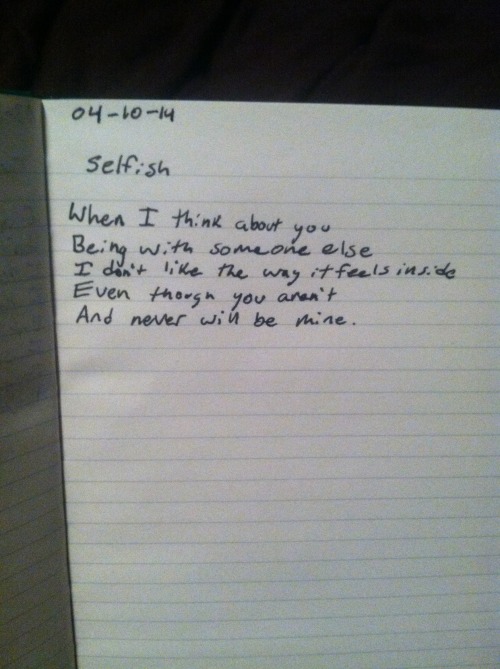 04-10-14
Selfish
When I think about you
Being with someone else
I don't like the way it feels inside
Even though you aren't
And never will be mine.